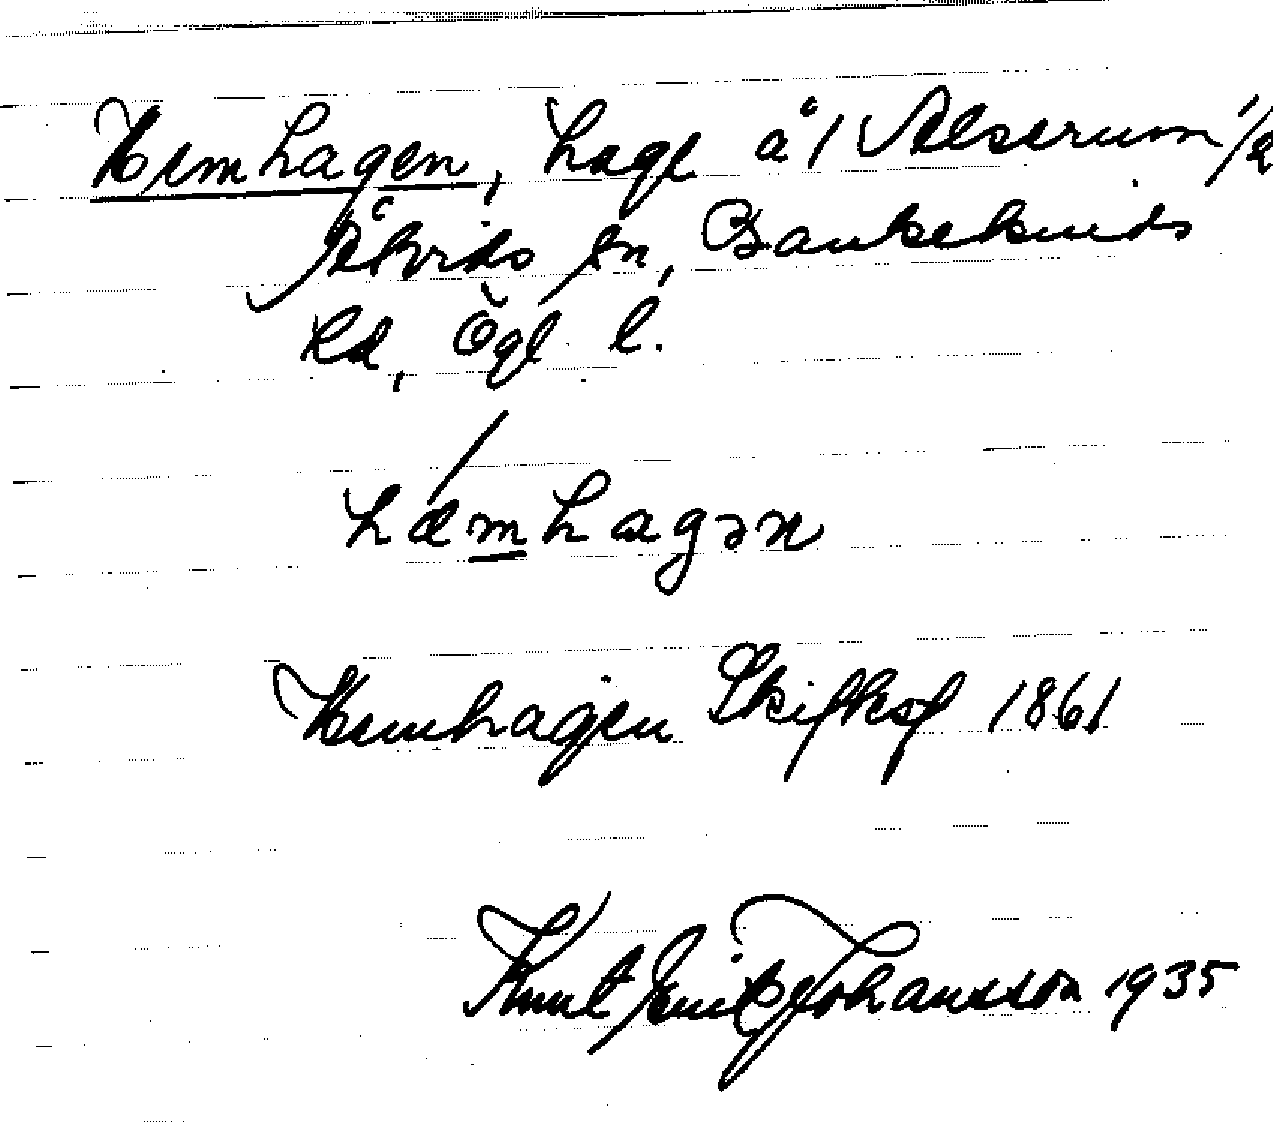 Hemhagen, hage å 1 Alserum 1/2
Åtvids sn, Bankekinds
hd, Ögl. l.
hæmhagən
Hemhagen Skifksf 1861
Knut Erik Johansson 1935